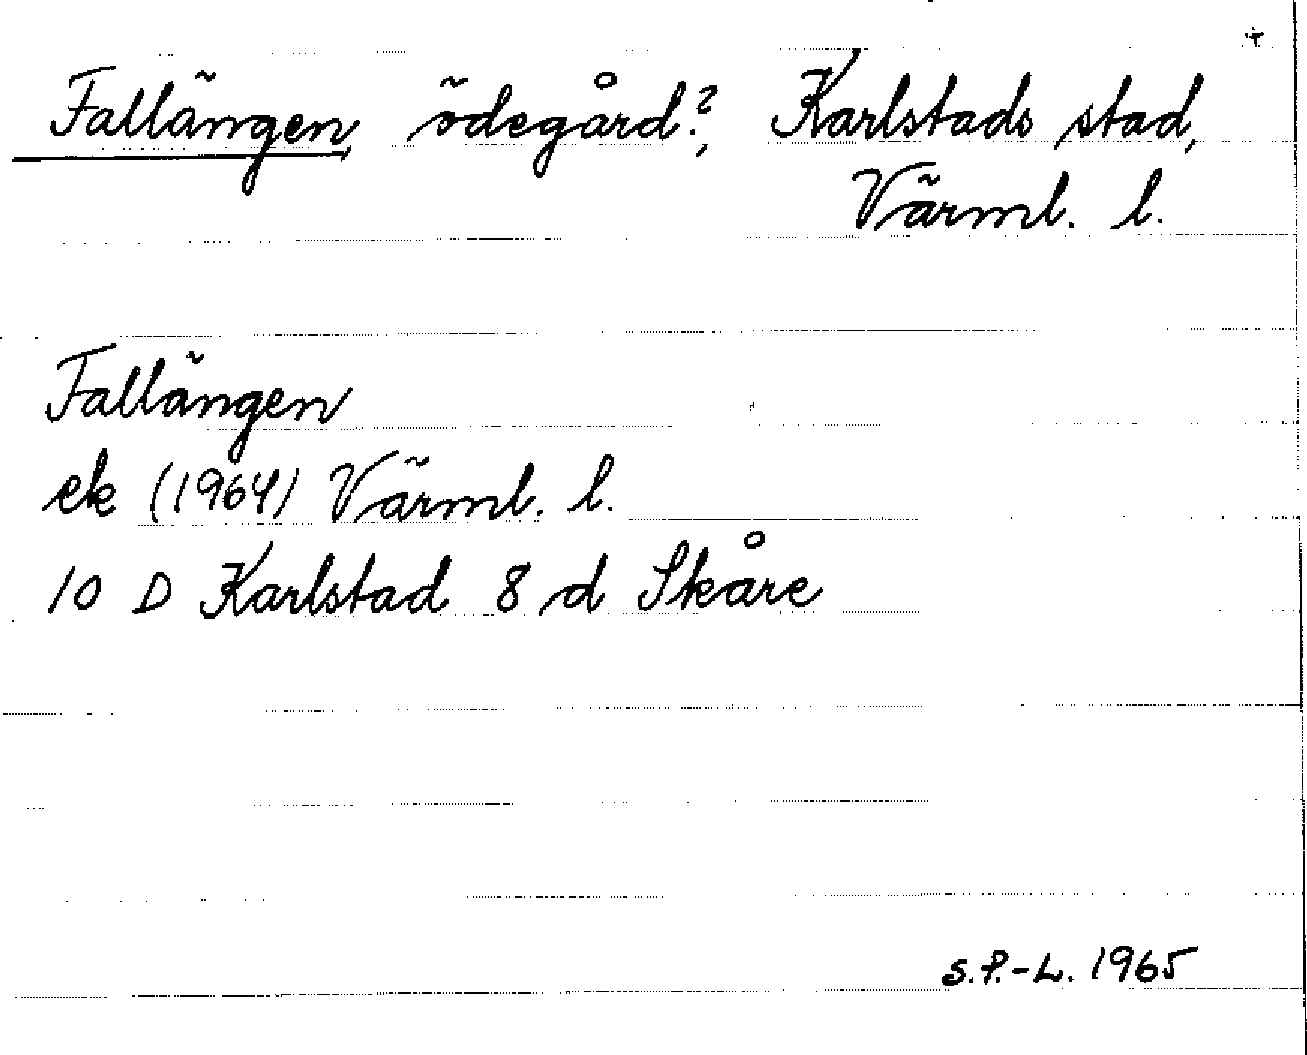 Fallängen, ödegård?, Karlstads stad,
Värml. l.
Fallängen
ek (1964) Värml. l.
10 D Karlstad 8 d Skåre
S.P.-L. 1965